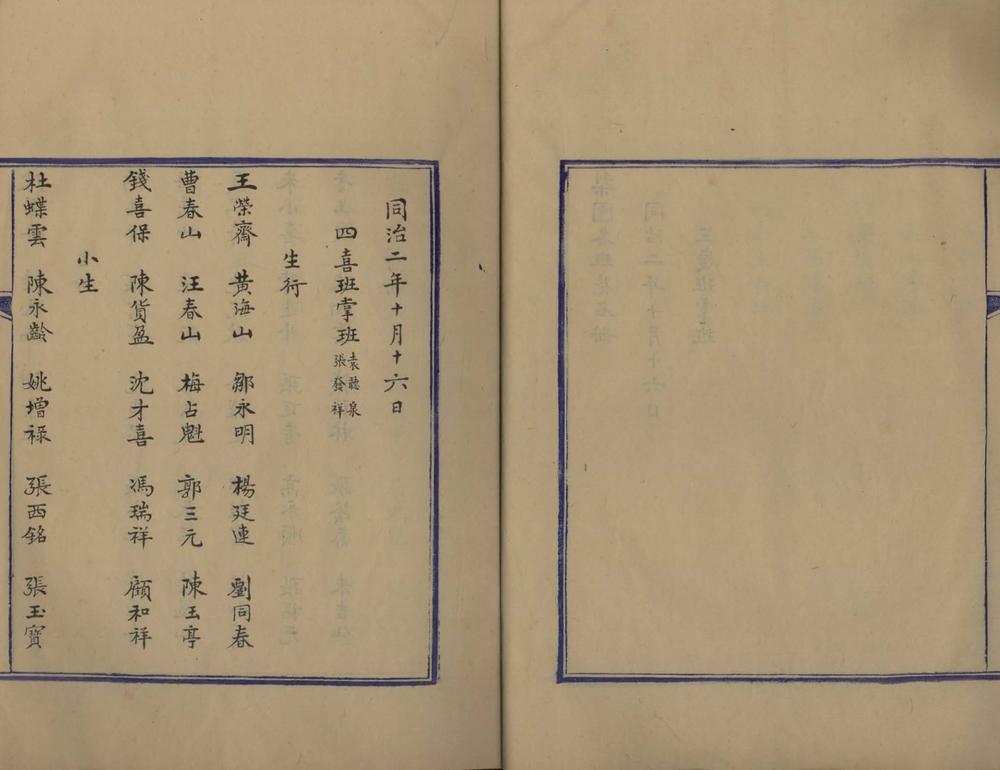 同治二年十月十六日
四喜班掌班 袁聽泉 張發祥
生行
王榮齋 黃海山 鄒永明 楊廷連 劉同春
曹春山 汪春山 梅占魁 郭三元 陳玉亭
錢喜保 陳貨盈 沈才喜 馮瑞祥 顧和祥
小生
杜蝶雲 陳永齡 姚增祿 張西銘 張玉寶